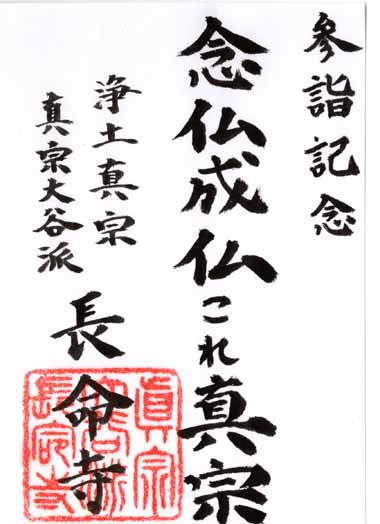 参詣記念
念仏成仏これ真宗
浄土真宗
真宗大谷派
長命寺